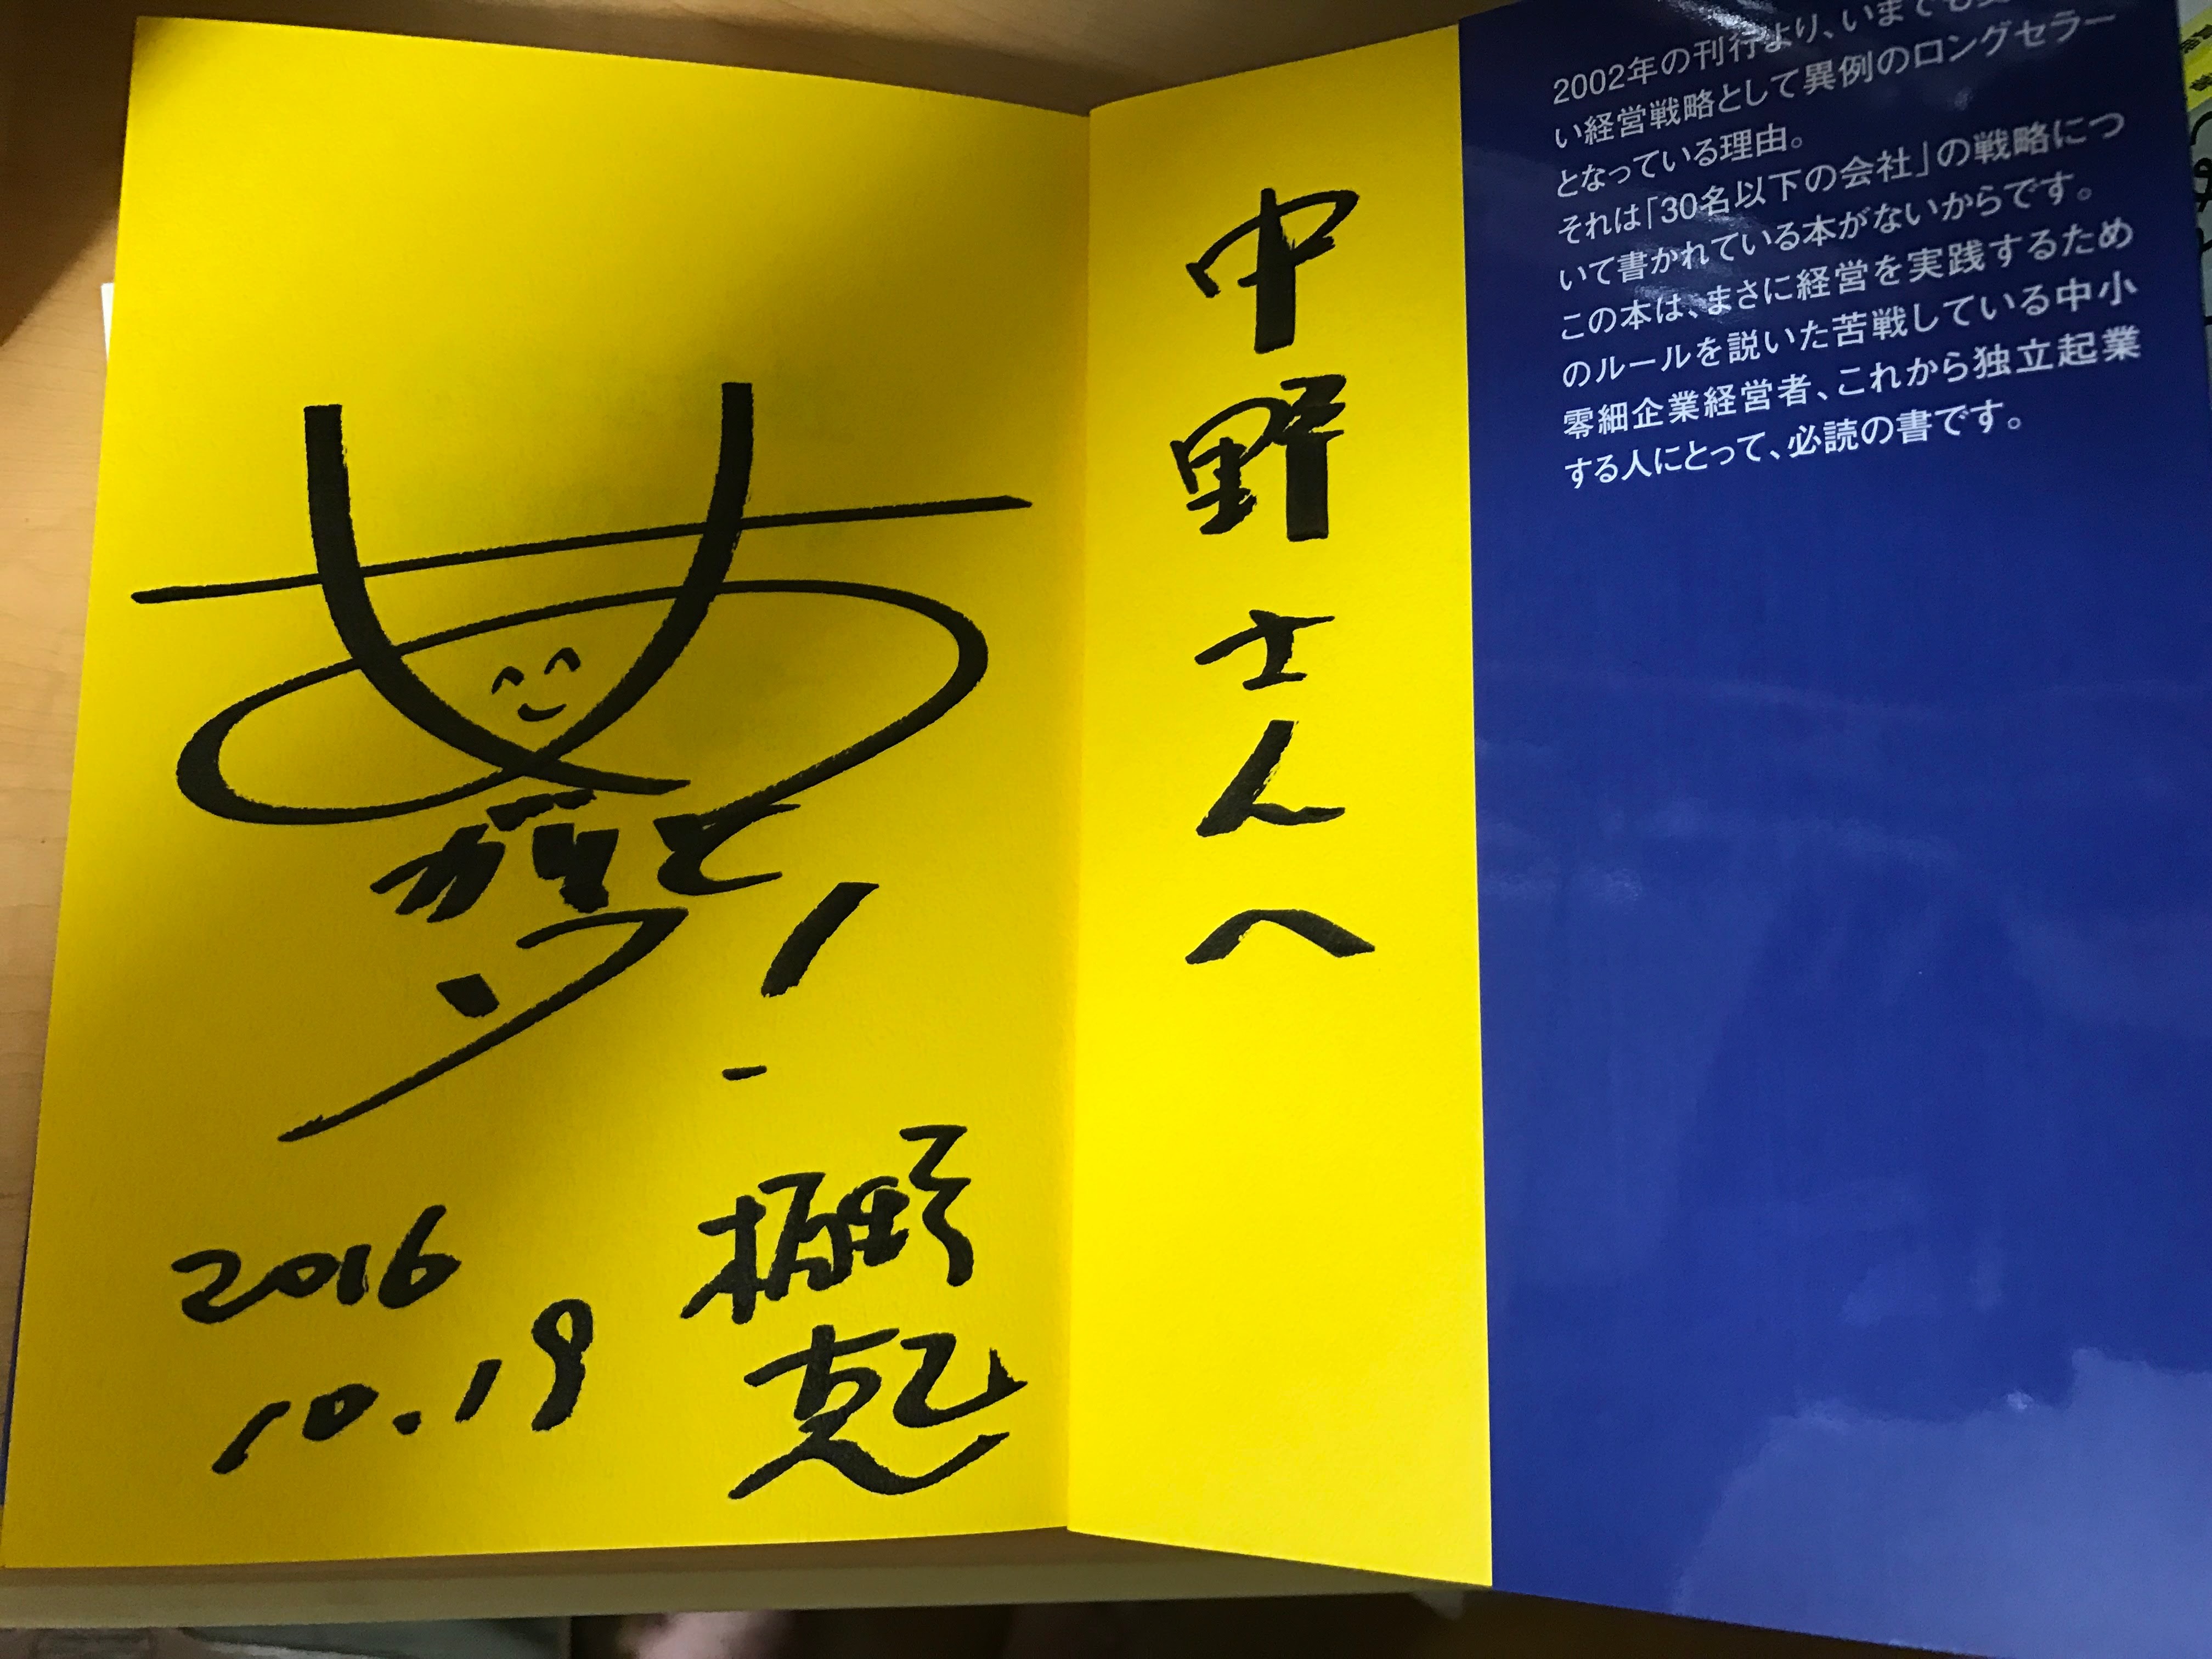 2002年の刊行より、いまでも
い経営戦略として異例のロングセラー
となっている理由。
それは「30名以下の会社」の戦略につ
いて書かれている本がないからです。
この本は、まさに経営を実践するため
のルールを説いた苦戦している中小
零細企業経営者、これから独立起業
する人にとって、必読の書です。
中野さんへ
栢野
克己
2016
10.19